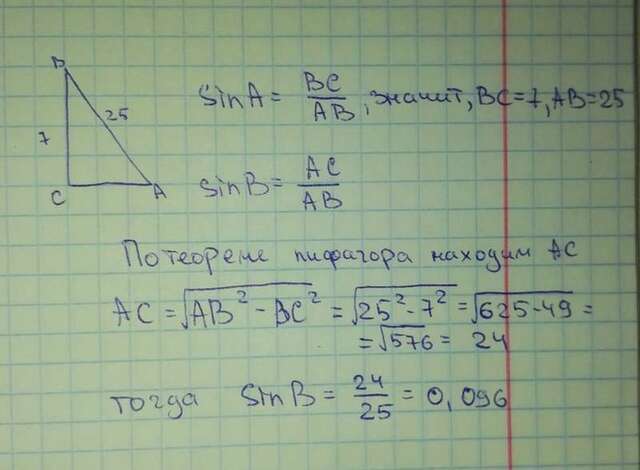 B
25
7
C A
sin A = BC/AB, значит, BC=7, AB=25
sin B = AC/AB
По теореме пифагора находим AC
AC = √(AB² - BC²) = √(25² - 7²) = √(625-49) =
= √576 = 24
тогда sin B = 24/25 = 0,096